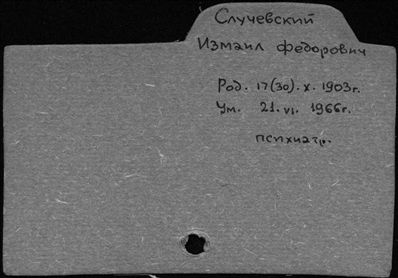 Случевский
Измаил Федорович
Род. 17(30).X.1903г.
Ум. 21.VI.1966г.
психиатр.